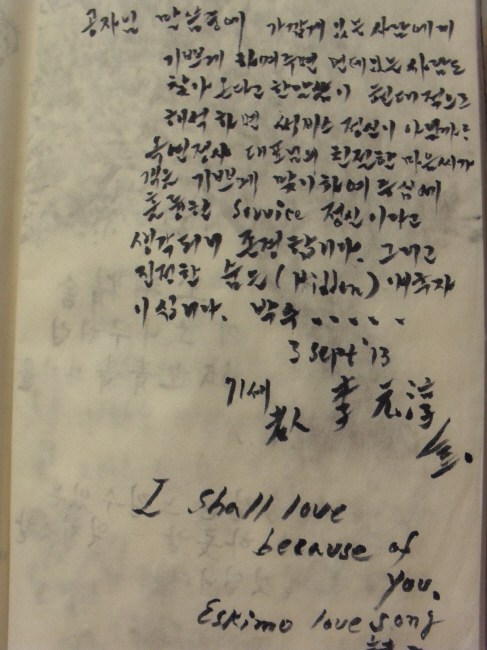 공자님 말씀중에 가깝게 있는 사람에게
기쁘게 하여주면 먼데있는 사람도
찾아 온다고 한 말씀이 현대적으로
해석하면 써비스 정신이 아닐까?
대표님의 친절한 마음씨가
기쁘게 맞이하여
훌륭한 Service 정신이라고
생각되어 존경합니다. 그리고
진정한 숨은 (Hidden) 애국자
이십니다. 박수 . . . . .
3 Sept '13
李 元 淳
I shall love
because of
you.
Eskimo love song